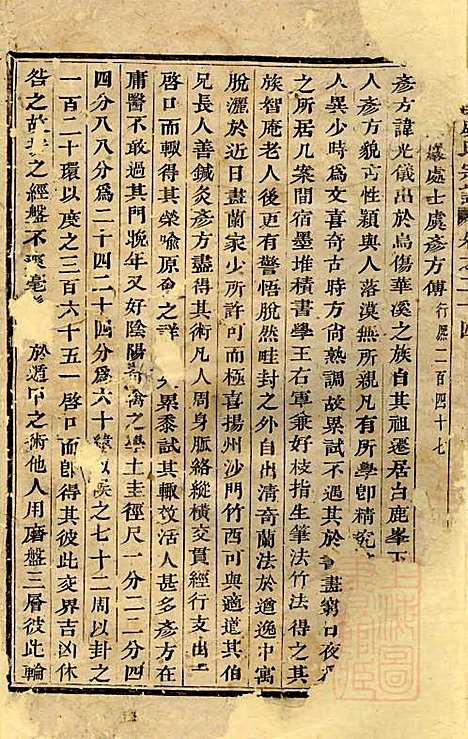 處士虞彥方傳 行愿二百四十七
彥方諱光儀出於烏傷華溪之族自其祖遷居白鹿峯下
人彥方貌古性穎與人落漠無所親凡有所學卽精究
人異少時爲文喜奇古時方尚熟調故累試不遇其於 畫窮日夜
之所居几案間宿墨堆積書學王右軍兼好枝指生筆法竹法得
族智庵老人老更有警悟脫然畦封之外自出淸奇蘭法於遒逸中寓
脫灑於近日畫蘭家少所許可而極喜揚州沙門竹西可與適道其伯
兄長人善鍼灸彥方盡得其術凡人周身脈絡縱橫交貫經行支出
啓口而輒得其榮喻原 之詳 累黍試其輒效活人甚多彥方在
庸醫不敢過其門晚年又好陰陽 之學土圭徑尺一分二二分四
四分八八分爲二十四二十四分爲六十 以 之七十二周以卦之
一百二十環以度之三百六十五一啓口而卽得其彼此交界吉凶休
咎之故 之經盤不 毫 於遁甲之術他人用磨盤三層彼此輪